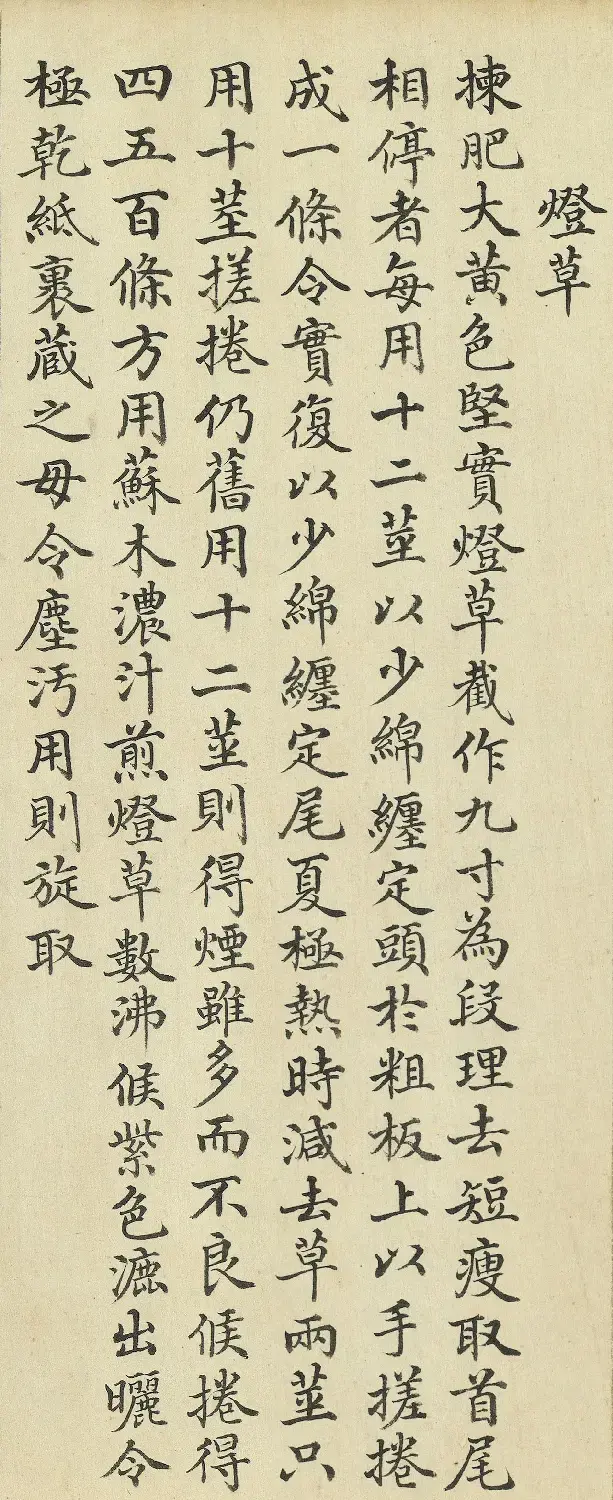 燈草
揀肥大黄色堅實燈草截作九寸為段理去短瘦取首尾
相停者每用十二莖以少綿纏定頭於粗板上以手搓捲
成一條令實復以少綿纏定尾夏極熱時減去草兩莖只
用十莖搓捲仍舊用十二莖則得煙雖多而不良候捲得
四五百條方用蘇木濃汁煎燈草數沸候紫色漉出曬令
極乾紙裹蔵之毋令塵汚用則旋取